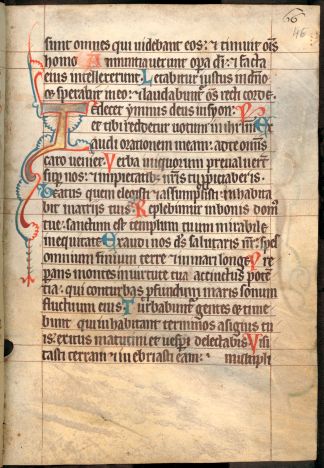 46
sunt omnes qui uidebant eos: ⁊ timuit om̄s
homo Annuntiauerunt opa dī: ⁊ facta
eius intellexerunt Letabitur iustus in dn̄o
⁊ sperabit in eo: ⁊ laudabunt᷑ om̄s recti corde.
Te decet ymnus deus in syon: ⁊
tibi reddetur uotum in ihrlm̄ Ex
audi orationem meam: ad te omīs
caro ueniet Verba iniquorum preualuerūt
sup nos: ⁊ impietatib; nr̄is tu ppiciaberis
Beatus quem elegisti ⁊ assumpsisti: inhabita
bit in atriis tuis Replebimur in bonis dom̄
tue: sanctum est templum tuum mirabile
in equitate Exaudi nos ds̄ salutaris nr̄: spes
omnium finium terre ⁊ in mari longe Pre
parans montes in uirtute tua accinctus poten
tia: qui conturbas pfundum maris sonum
fluctuum eius Turbabunt᷑ gentes ⁊ time
bunt qui inhabitant terminos a signis tu
is: exitus matutini et uespi delectabis Visi
tasti terram ⁊ inebriasti eam: multipli